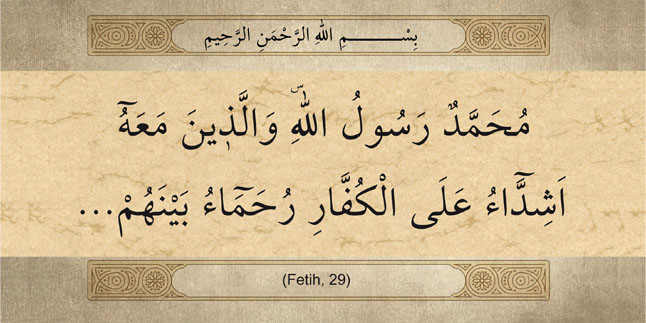 بِسْمِ اللهِ الرَّحْمَنِ الرَّحِيمِ
مُحَمَّدٌ رَسُولُ اللّٰهِۜ وَالَّذ۪ينَ مَعَهُٓ
اَشِدَّٓاءُ عَلَى الْكُفَّارِ رُحَمَٓاءُ بَيْنَهُمْ...
(Fetih, 29)